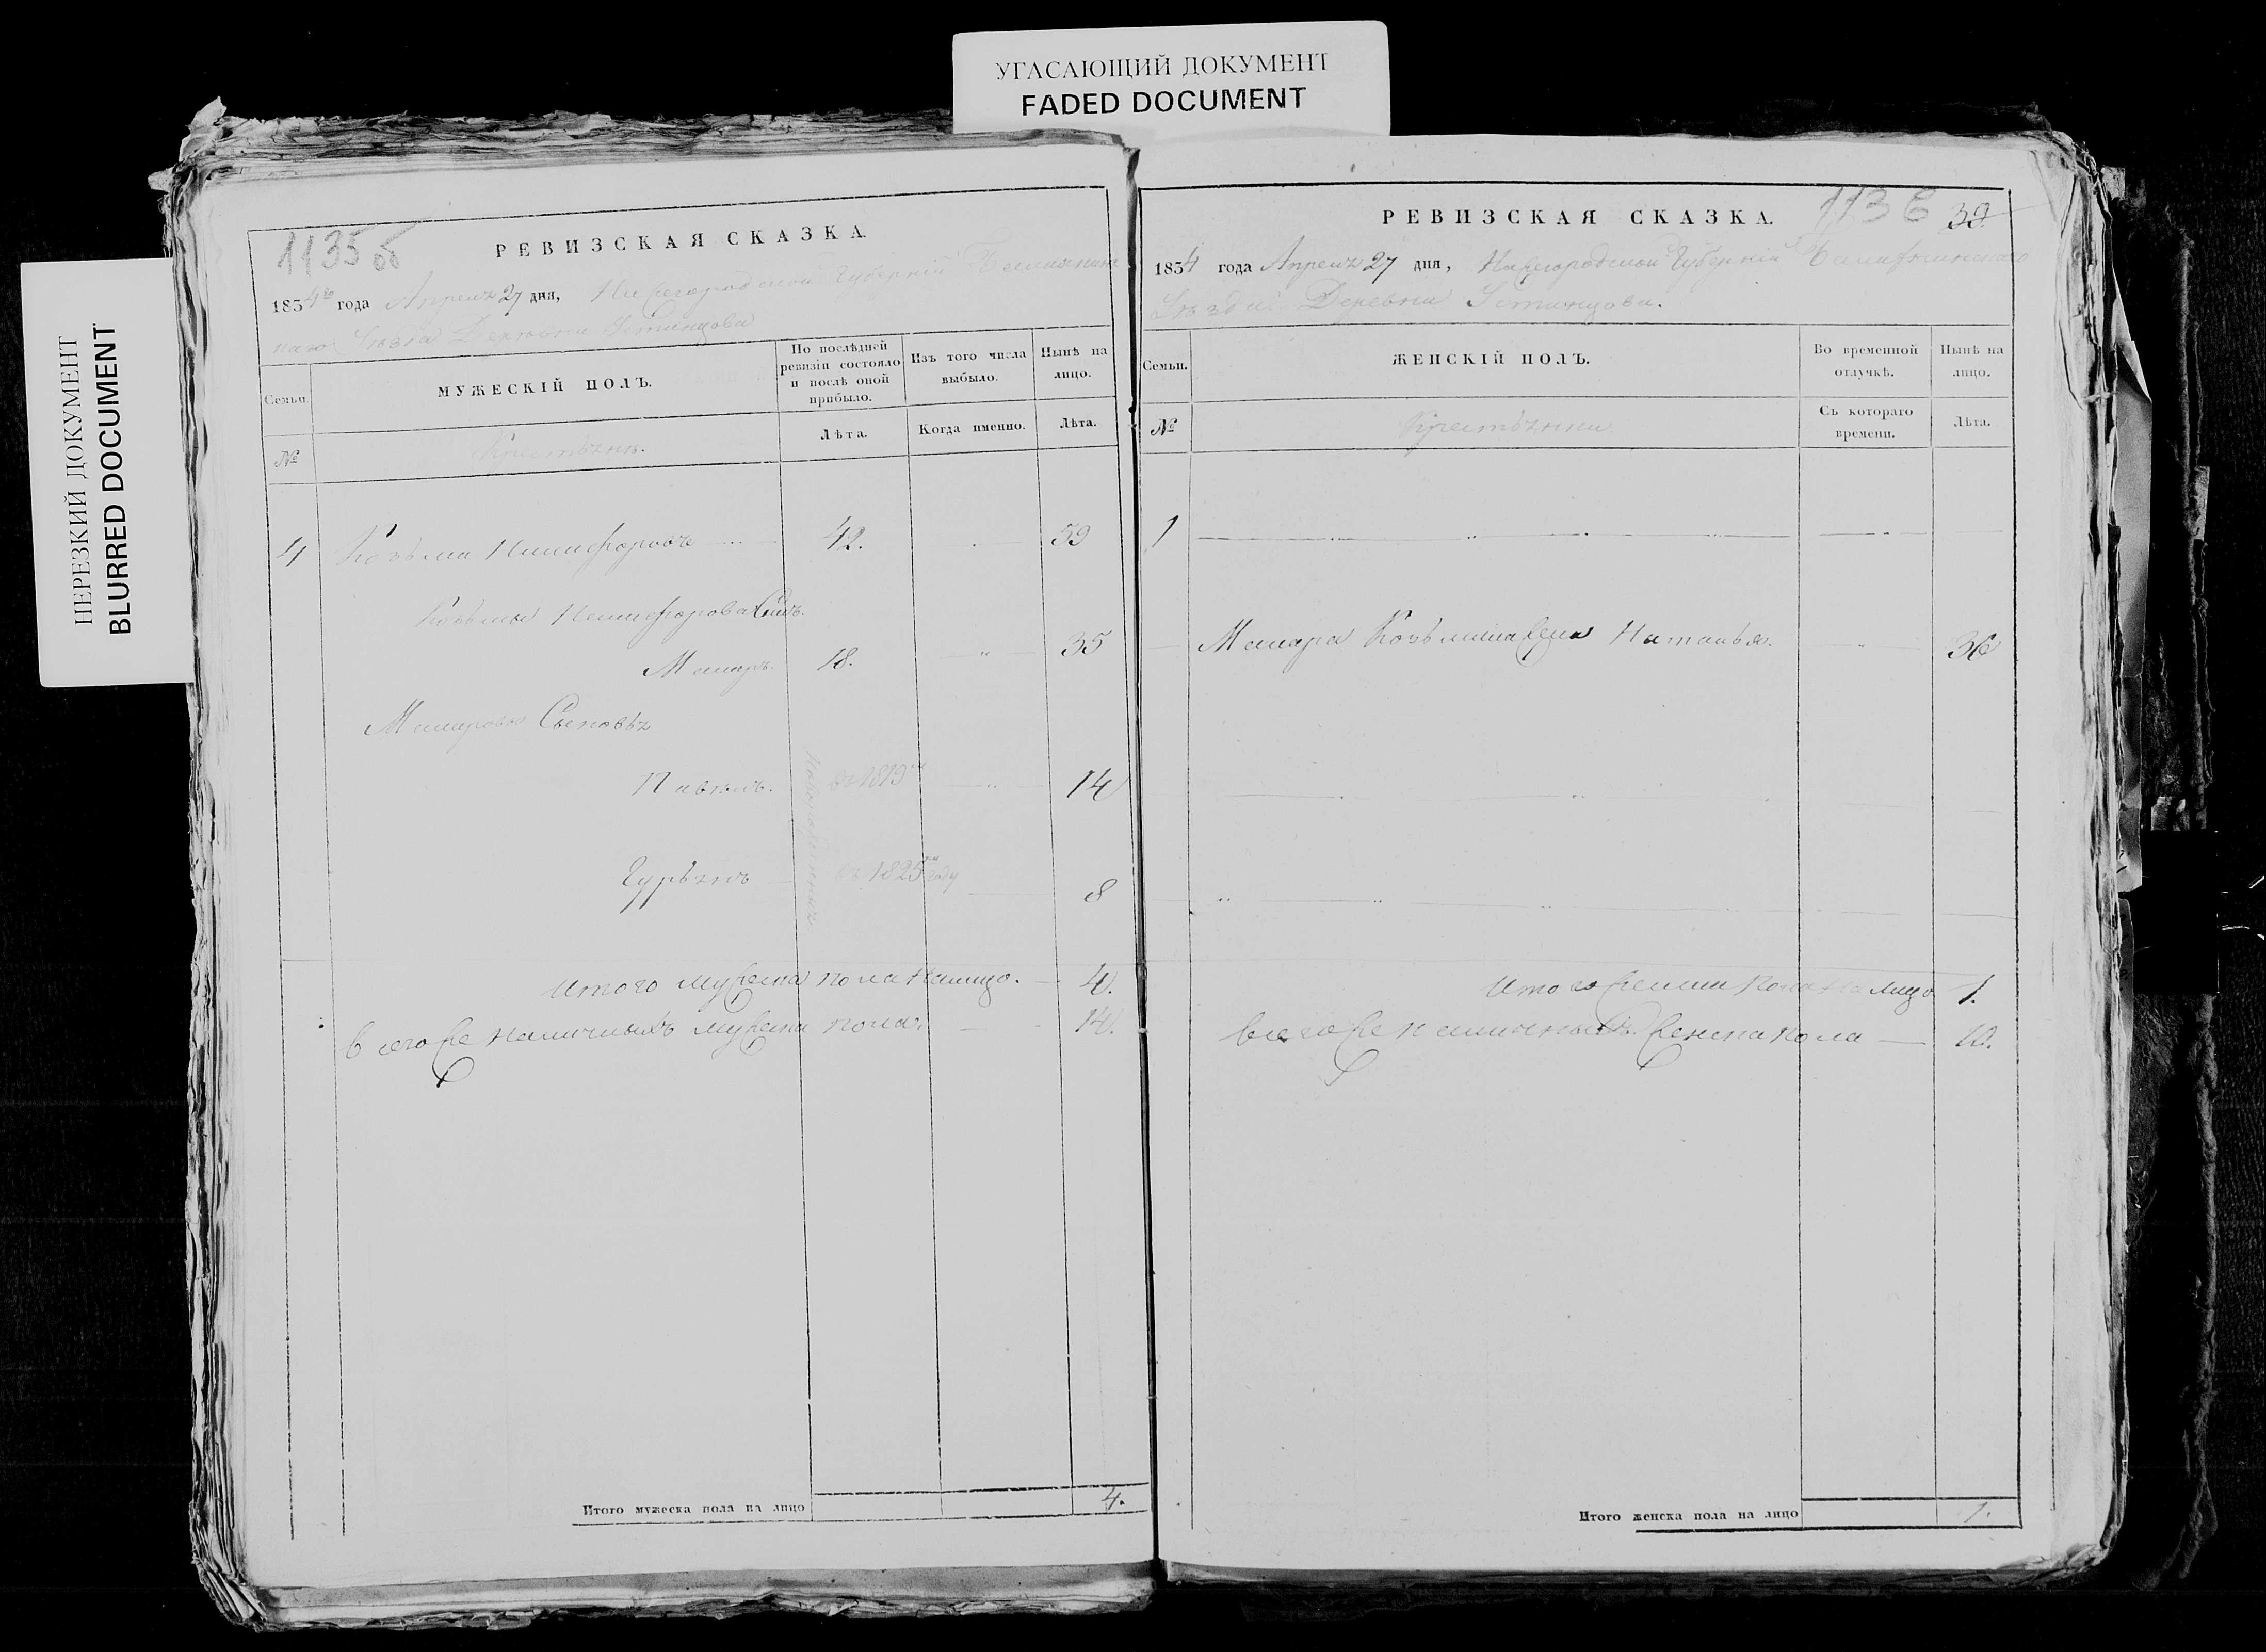 УГАСАЮЩИЙ ДОКУМЕНТ
FADED DOCUMENT
НЕРЕЗКИЙ ДОКУМЕНТ
BLURRED DOCUMENT
1135 об
РЕВИЗСКАЯ СКАЗКА
1834го года Апреля 27 дня, Нижегородской Губернии
наго Уезда Деревни Устинцова
Семьи.
МУЖЕСКІЙ ПОЛЪ.
По послѣдней ревизіи состояло и послѣ оной прибыло.
Изъ того числа выбыло.
Нынѣ на лицо.
№
Крестьяне.
Лѣта.
Когда именно.
Лѣта.
4 Козьма Никифоровъ 42. 59
Козьмы Никифорова Сынъ.
Макаръ. 18. 35
Макаровы Сыновья
Павелъ. въ 1819м 14
Гурьянъ въ 1825м году 8
Новорожденные
Итого мужеска пола налицо. 4.
Всего же наличныхъ мужеска пола. 14.
Итого мужеска пола на лицо 4.
1136 39.
РЕВИЗСКАЯ СКАЗКА.
1834 года Апреля 27 дня, Нижегородской Губерніи
Уезда Деревни Устинцова.
Семьи.
ЖЕНСКІЙ ПОЛЪ.
Во временной отлучкѣ.
Нынѣ на лицо.
№
Крестьянки
Съ котораго времени.
Лѣта.
1
Макара Козьмина жена Наталья. 36
Итого женска пола на лицо 1.
Всего же наличныхъ женска пола 10.
Итого женска пола на лицо 1.